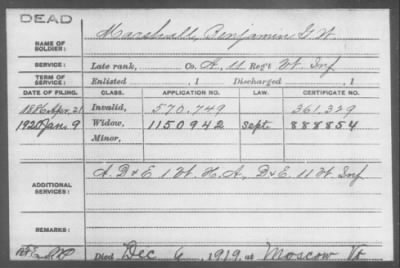 DEAD
NAME OF SOLDIER: Marshall, Benjamin G. W.
SERVICE: Late rank, Co. A, 11 Reg't Vt. Inf
TERM OF SERVICE: Enlisted , 1 Discharged , 1
DATE OF FILING. CLASS. APPLICATION NO. LAW. CERTIFICATE NO.
1886 Apr. 21 Invalid, 570.749 361,329
1920 Jan. 9 Widow, 1150942 Sept. 888854
Minor,
ADDITIONAL SERVICES: A. D & E 1 Vt. H. A., D & E. 11 Vt. Inf
REMARKS:
Died Dec 6, 1919, at Moscow Vt